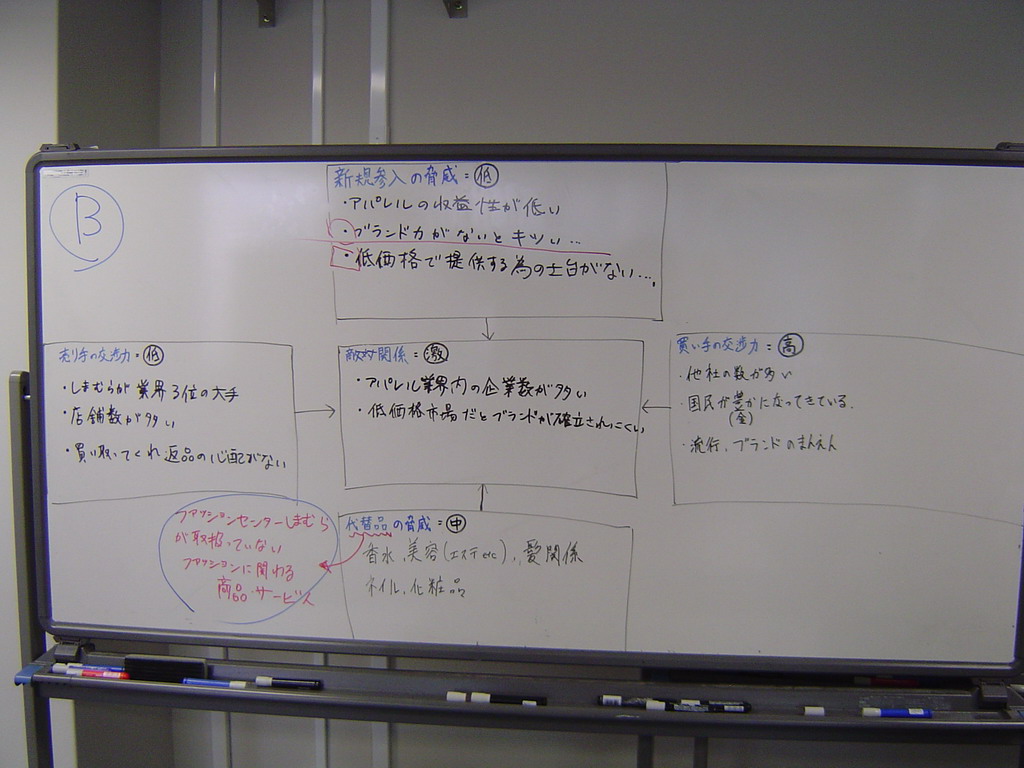 B
新規参入の脅威=低
・アパレルの収益性が低い
・ブランド力がないとキツい…
・低価格で提供する為の土台がない….
売り手の交渉力=低
・しまむらが業界3位の大手
・店舗数が多い
・買い取ってくれ返品の心配がない
敵対関係=激
・アパレル業界内の企業数が多い
・低価格市場だとブランドが確立されにくい
買い手の交渉力=高
・他社の数が多い
・国民が豊かになってきている.
(金)
・流行、ブランドのまんえん
代替品の脅威=中
香水、美容(エステetc)、愛関係
ネイル、化粧品
ファッションセンターしまむら
が取扱っていない
ファッションに関わる
商品・サービス